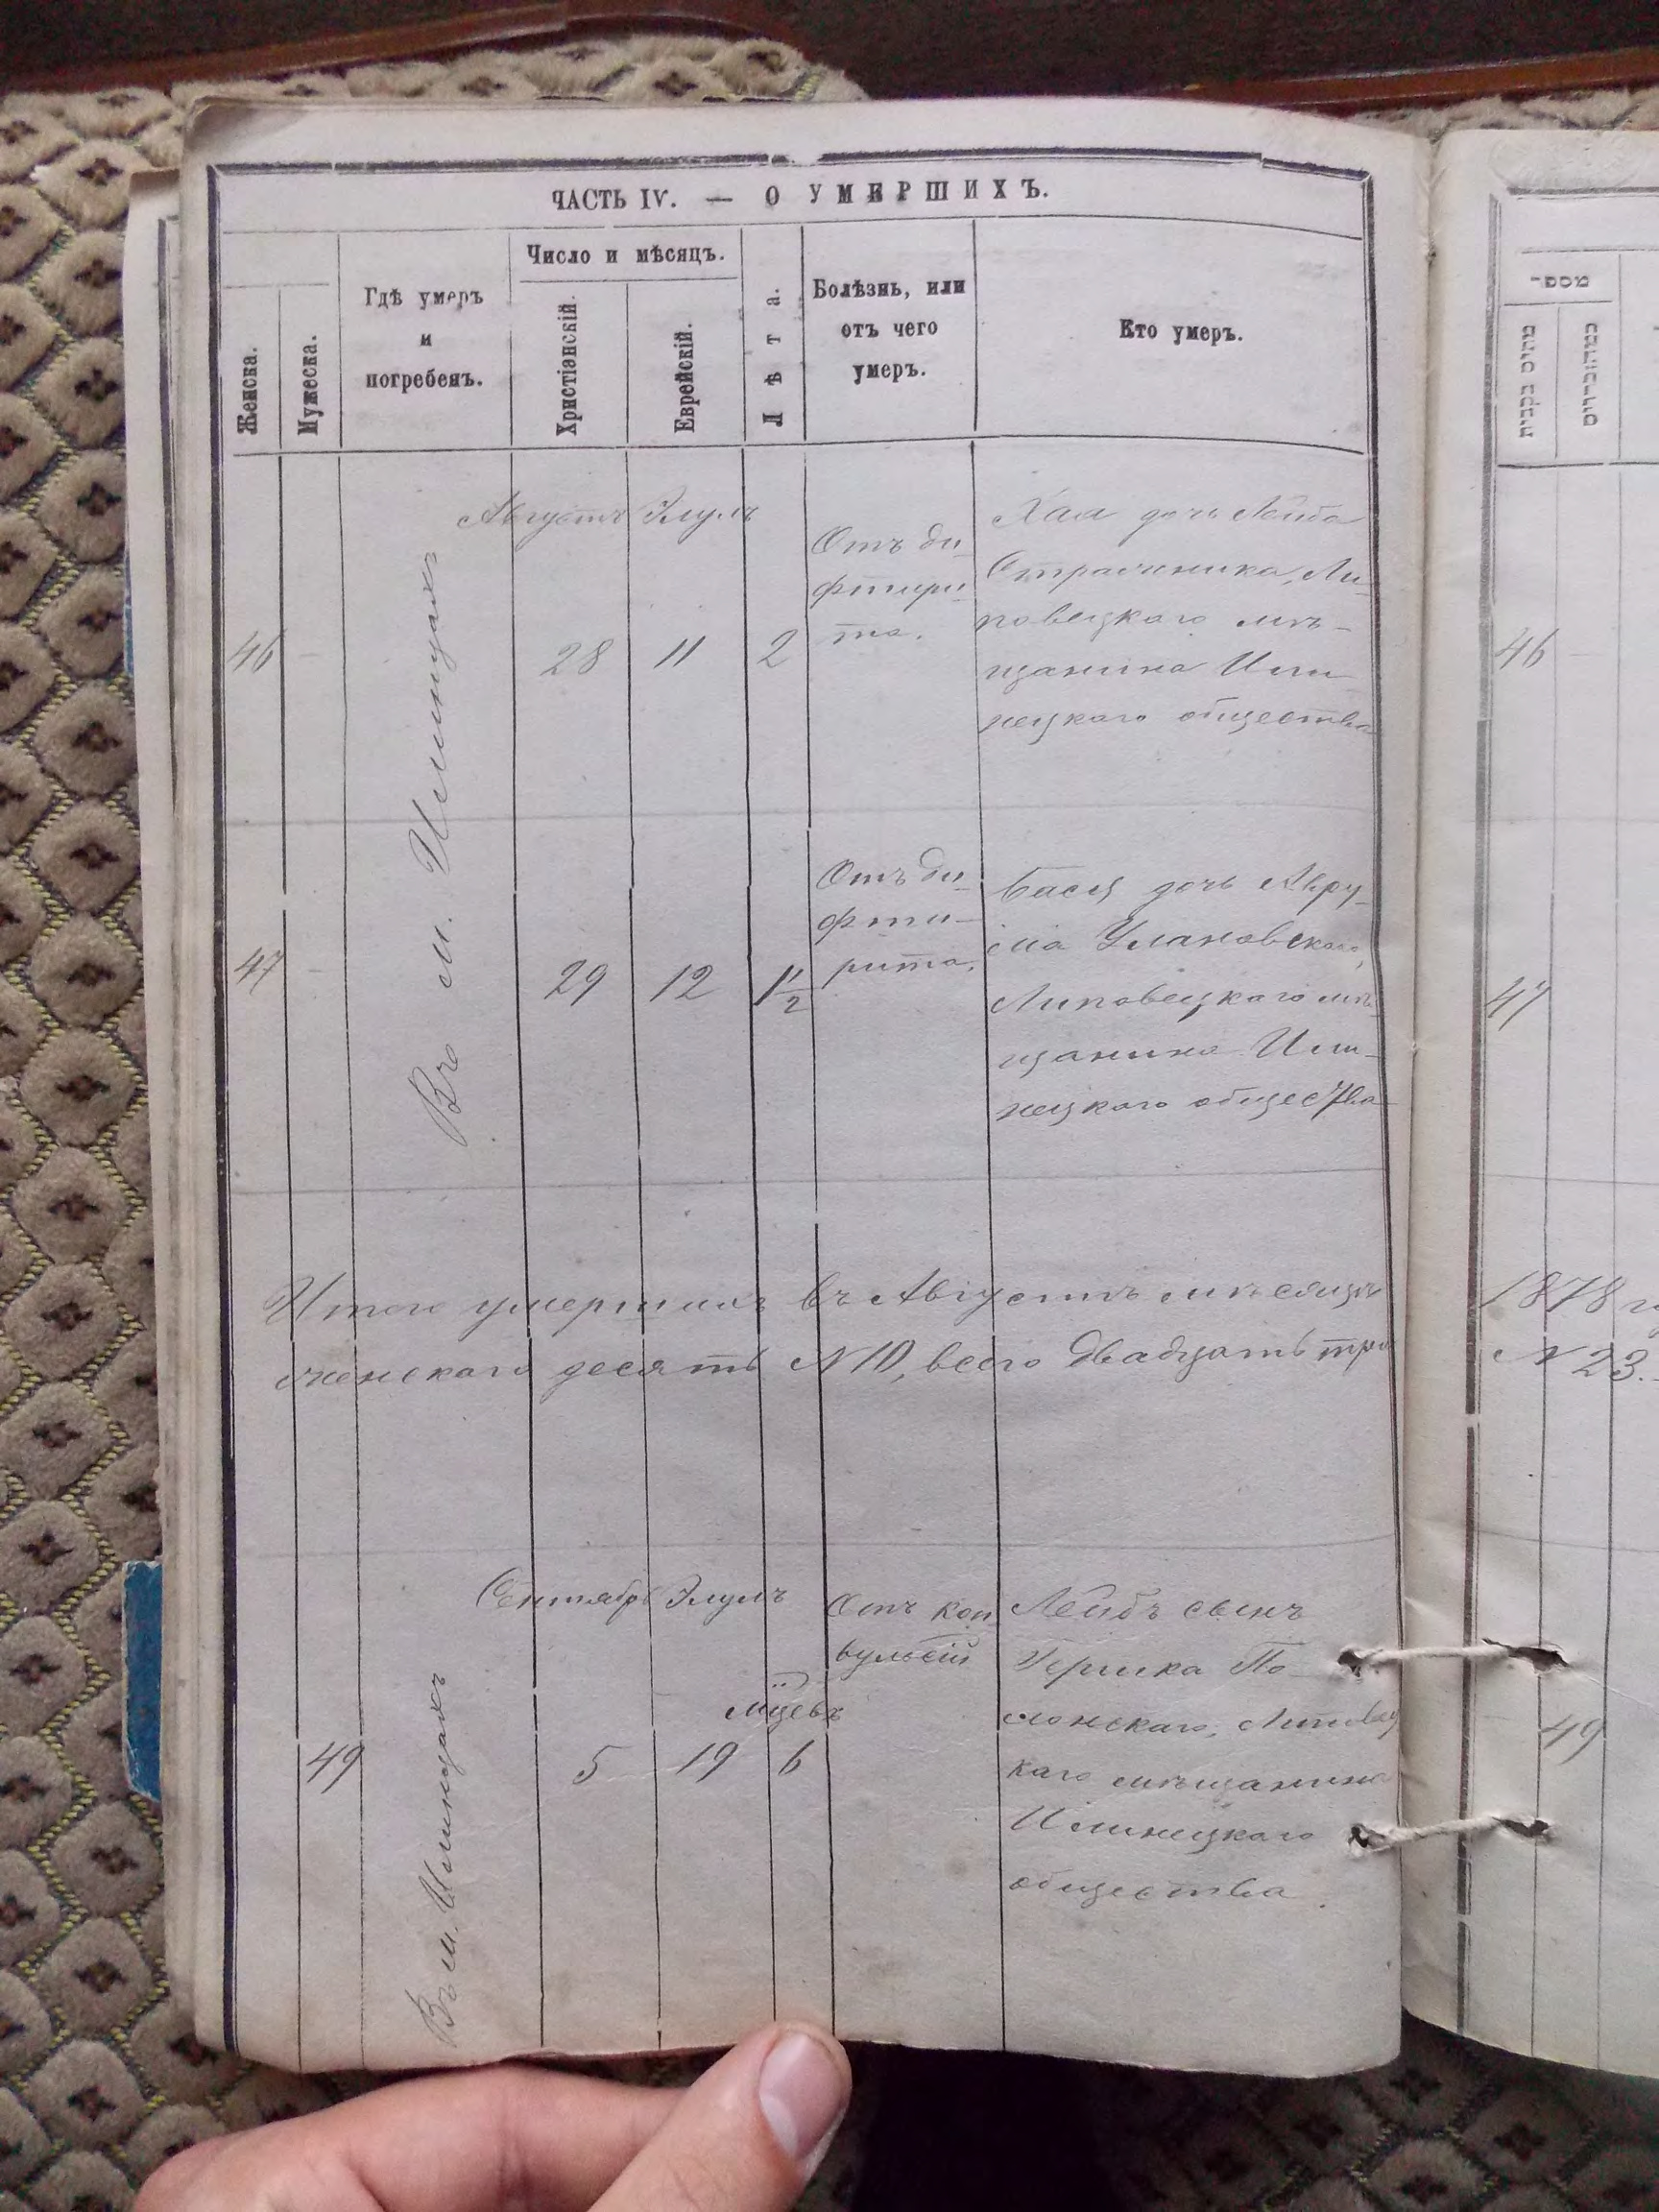 ЧАСТЬ IV. — О УМЕРШИХЪ.
Женска.
Мужеска.
Гдѣ умеръ
и
погребенъ.
Число и мѣсяцъ.
Христіанскій.
Еврейскій.
Лѣта.
Болѣзнь, или
отъ чего
умеръ.
Кто умеръ.
Августъ Элулъ
46
Въ м. Илинцахъ
28
11
2
Отъ ди-
фтири-
та.
Хая дочь Лейба
Липовецкаго мѣ-
щанина Или
нецкаго общества
47
29
12
1 1/2
Отъ ди-
фти-
рита.
Бася дочь Авру-
ма Улановскаго,
Липовецкаго мѣ-
щанина Или-
нецкаго общества
Итого умершихъ въ Августѣ мѣсяцѣ
женскаго десять N 10, всего двадцать три
Сентябрь Элулъ
49
Въ м. Илинцахъ
5
19
мцевъ
6
Отъ кон
вульсій
Лейбъ сынъ
Гершка По-
лонскаго, Липовец
каго мѣщанина
Илинецкаго
общества.
מספר
מהנקבות
מהזכרים
46
47
1878 г
N 23.
49